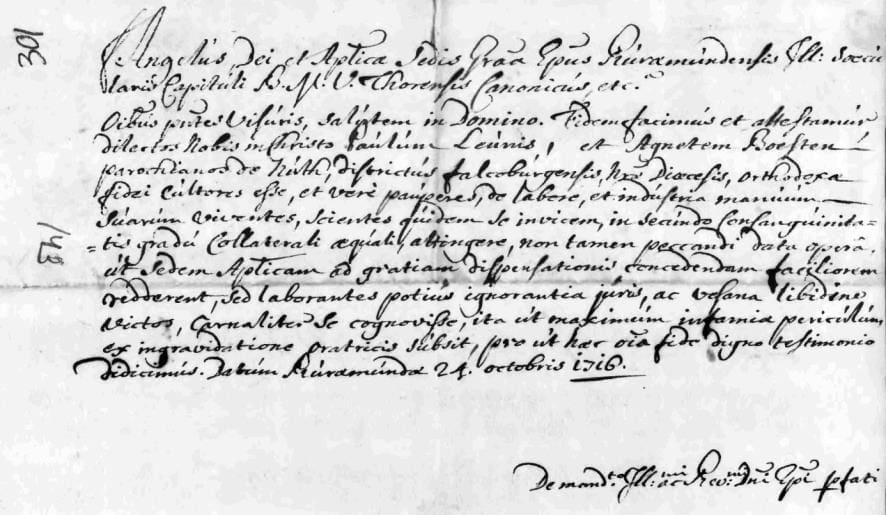 301
143
Angelus, Dei et Aplicæ Sedis Grāā Epus Ruræmundensis Ill: Sæcu
laris Capituli B. M. V. Thorensis Canonicus, etc.ª
Oibus pntes Visuris, salutem in Domino. Fidem facimus et attestamur
dilectos Nobis in Christo Paulum Leunis, et Agnetem Boesten
parochianos de Nuth, districtus falcoburgensis, nræ Diœcesis, orthodoxæ
fidei Cultores esse, et verè pauperes, de labore, et industria manuum
suarum viventes, scientes quidem se invicem, in secundo Consanguinita=
=tis gradu Collaterali æquali, attingere, non tamen peccandi data operâ,
ut Sedem Aplicam ad gratiam dispensationis concedendam faciliorem
redderent, sed laborantes potius ignorantia juris, ac vesana libidine
victos, Carnaliter se cognovisse, ita ut maximum infamiæ periculum
ex ingravidatione oratricis subsit, pro ut hæc oīa fide digno testimonio
didicimus. Datum Ruræmundæ 24. octobris 1716.
De mandto Ill:mi ac Rev:mi Dni Epi pfati